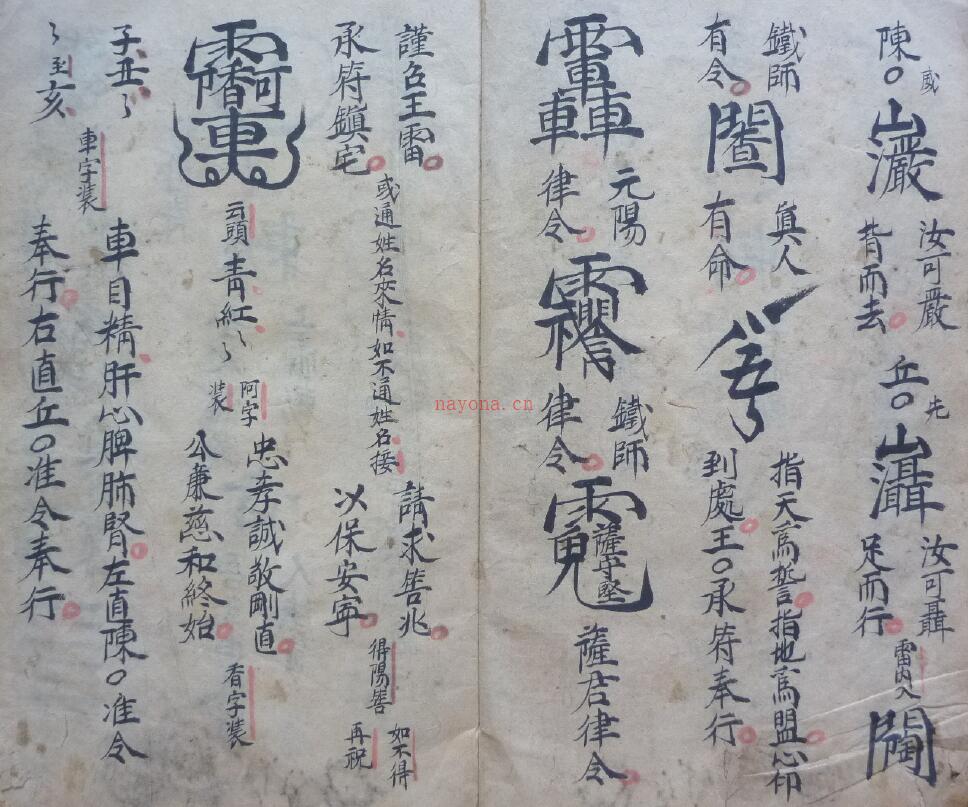 陳〇 威 汝可嚴
背而去 丘〇 先 汝可聶
足而行 雷内入
鐵師
有令 真人
有命 指天為誓指地為盟心印
到處王〇承符奉行
元陽
律令 鐵師
律令 薩守堅
薩君律令
謹召王雷
承符鎮宅 或通姓名來情如不通姓名接
請求筶兆
以保安寧 得陽筶 如不得
再祝
云頭 青紅〻 阿字
装 忠孝誠敬剛直
公廉慈和終始 看字装
子丑〻
〻到亥 車字装
車目精肝心脾肺腎左直陳〇准令
奉行右直丘〇准令奉行
nayona.cn